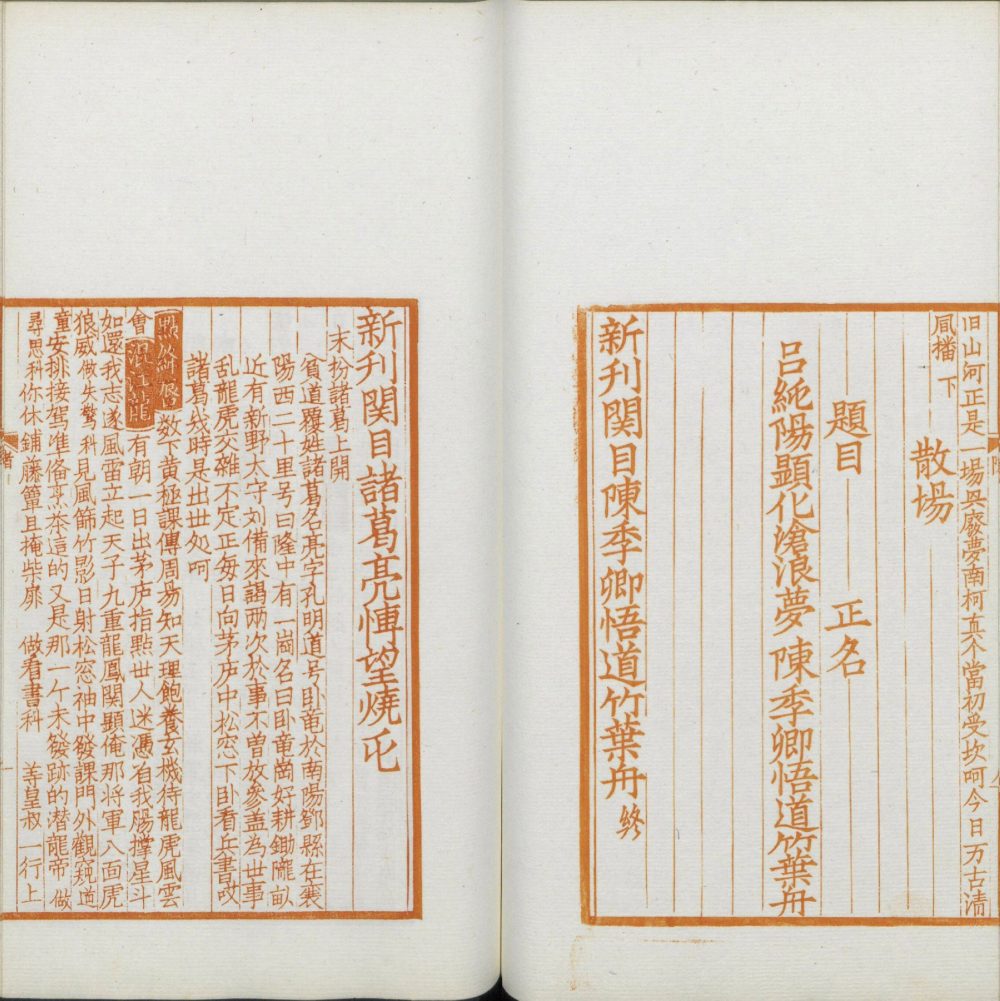 旧山河正是一場興廢夢南柯真个當初受坎呵今日万古清
風播　下
散場
題目　正名
呂純陽顯化滄浪夢　陳季卿悟道竹葉舟
新刋関目陳季卿悟道竹葉舟　終
新刋関目諸葛亮愽望燒屯
末扮諸葛上開
貧道覆姓諸葛名亮字孔明道号卧竜於南陽鄧縣在襄
陽西二十里号曰隆中有一崗名曰卧竜崗好耕鋤隴畒
近有新野太守刘備來謁两次於事不曾放參盖為世事
乱龍虎交雜不定正每日向茅庐中松窓下卧看兵書哎
諸葛㦲時是出世処呵
點絳唇　数下黄極課傳周易知天理飽養玄機待龍虎風雲
會　混江龍　有朝一日出茅庐指點世人迷憑着我腸撑星斗
如還我志遂風雷立起天子九重龍鳳関顯俺那将軍八面虎
狼威做失驚科見風篩竹影日射松窓袖中發課門外觀窺道
童安排接驾准备烹茶這的又是那一个未發跡的潜龍帝　做
尋思科你休鋪藤簟且掩柴扉　做看書科　等皇叔一行上